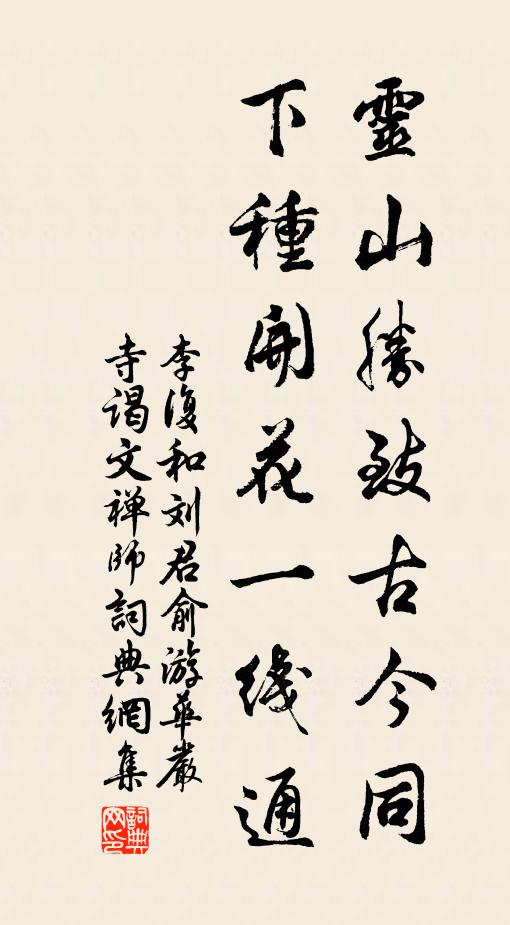 靈山勝致古今同
下種開花一线通
李復和刘君俞游華嚴
寺谒文禅師詞典網集
詞典
网印